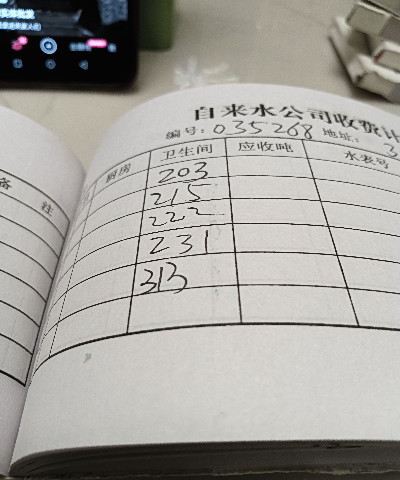 自来水公司收费计
编号:035268 地址: 3
备 注
厨房 卫生间 应收吨 水表号
203
215
222
231
313